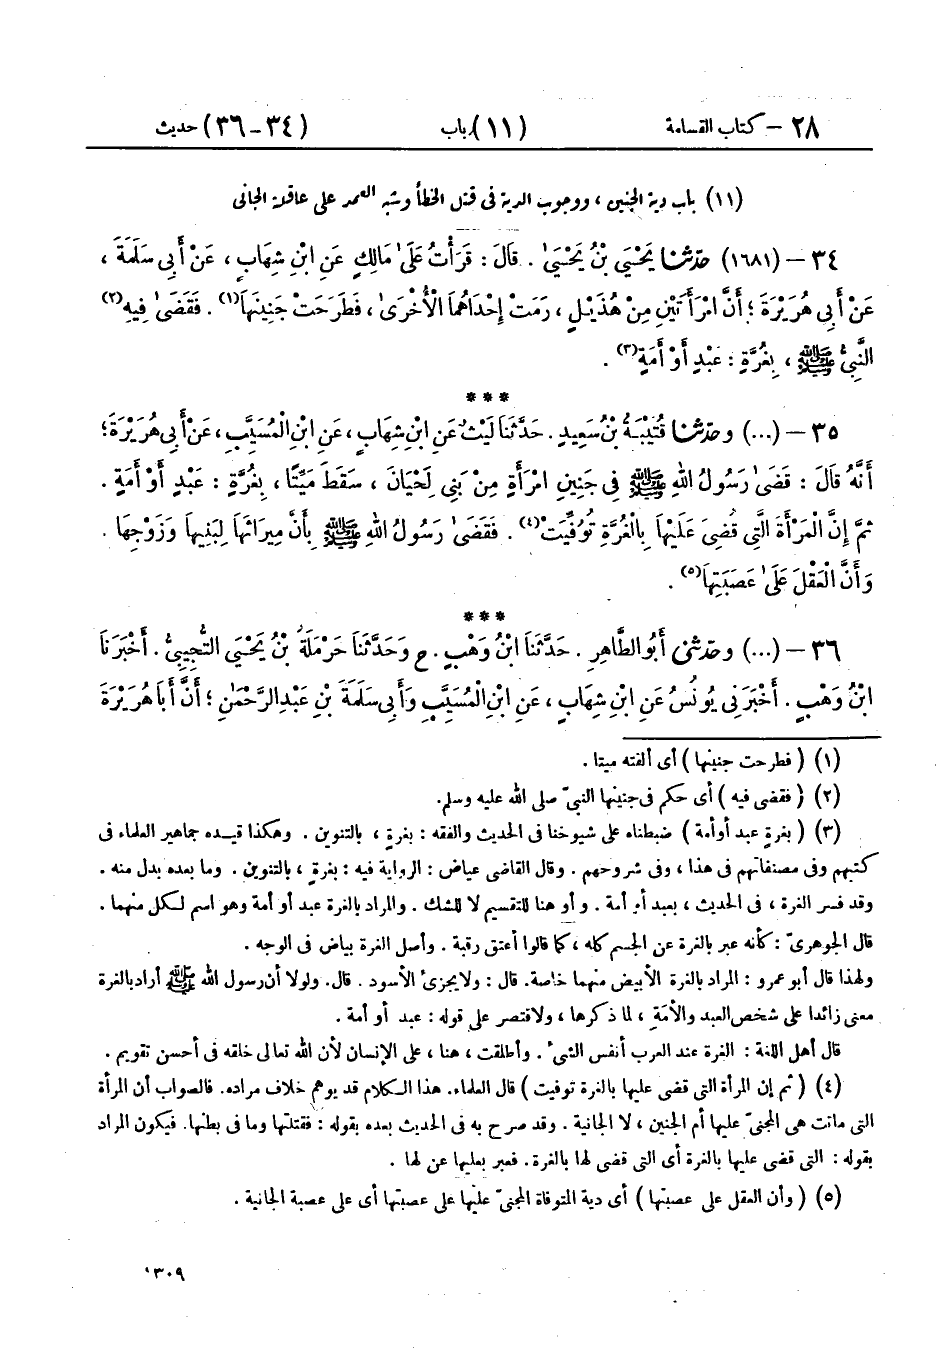 ٢٨ – كتاب القسامة (١١) باب (٣٤-٣٦) حديث
(١١) باب دية الجنين ، ووجوب الدية فى قتل الخطأ وشبه العمد على عاقلة الجانى
٣٤ – (١٦٨١) حَدَّثَنَا يَحْيَىٰ بْنُ يَحْيَىٰ . قَالَ : قَرَأْتُ عَلَىٰ مَالِكٍ عَنِ ابْنِ شِهَابٍ ، عَنْ أَبِي سَلَمَةَ ،
عَنْ أَبِي هُرَيْرَةَ ؛ أَنَّ امْرَأَتَيْنِ مِنْ هُذَيْلٍ ، رَمَتْ إِحْدَاهُمَا الْأُخْرَىٰ ، فَطَرَحَتْ جَنِينَهَا(١) . فَقَضَىٰ فِيهِ(٢)
النَّبِيُّ ﷺ ، بِغُرَّةٍ : عَبْدٍ أَوْ أَمَةٍ(٣) .
***
٣٥ – (...) وحَدَّثَنَا قُتَيْبَةُ بْنُ سَعِيدٍ . حَدَّثَنَا لَيْثٌ عَنِ ابْنِ شِهَابٍ ، عَنِ ابْنِ الْمُسَيَّبِ ، عَنْ أَبِي هُرَيْرَةَ ؛
أَنَّهُ قَالَ : قَضَىٰ رَسُولُ اللهِ ﷺ فِي جَنِينِ امْرَأَةٍ مِنْ بَنِي لَحْيَانَ ، سَقَطَ مَيِّتًا ، بِغُرَّةٍ : عَبْدٍ أَوْ أَمَةٍ .
ثُمَّ إِنَّ الْمَرْأَةَ الَّتِي قُضِيَ عَلَيْهَا بِالْغُرَّةِ تُوُفِّيَتْ(٤) . فَقَضَىٰ رَسُولُ اللهِ ﷺ بِأَنَّ مِيرَاثَهَا لِبَنِيهَا وَزَوْجِهَا .
وَأَنَّ الْعَقْلَ عَلَىٰ عَصَبَتِهَا(٥) .
***
٣٦ – (...) وحَدَّثَنِي أَبُو الطَّاهِرِ . حَدَّثَنَا ابْنُ وَهْبٍ . ح وَحَدَّثَنَا حَرْمَلَةُ بْنُ يَحْيَىٰ التُّجِيبِيُّ . أَخْبَرَنَا
ابْنُ وَهْبٍ . أَخْبَرَنِي يُونُسُ عَنِ ابْنِ شِهَابٍ ، عَنِ ابْنِ الْمُسَيَّبِ وَأَبِي سَلَمَةَ بْنِ عَبْدِ الرَّحْمَٰنِ ؛ أَنَّ أَبَا هُرَيْرَةَ
(١) ( فطرحت جنينها ) أى ألقته ميتا .
(٢) ( فقضى فيه ) أى حكم فى جنينها النبىّ صلى الله عليه وسلم.
(٣) ( بغرة عبد أو أمة ) ضبطناه على شيوخنا فى الحديث والفقه : بغرةٍ ، بالتنوين . وهكذا قيده جماهير العلماء فى
كتبهم وفى مصنفاتهم فى هذا ، وفى شروحهم . وقال القاضى عياض : الرواية فيه : بغرةٍ ، بالتنوين . وما بعده بدل منه .
وقد فسر الغرة ، فى الحديث ، بعبد أو أمة . وأو هنا للتقسيم لا للشك . والمراد بالغرة عبد أو أمة وهو اسم لكل منهما .
قال الجوهرىّ : كأنه عبر بالغرة عن الجسم كله ، كما قالوا أعتق رقبة . وأصل الغرة بياض فى الوجه .
ولهذا قال أبو عمرو : المراد بالغرة الأبيض منهما خاصة. قال : ولا يجزئ الأسود . قال. ولولا أن رسول الله ﷺ أراد بالغرة
معنى زائدا على شخص العبد والأمَةِ ، لما ذكرها ، ولاقتصر على قوله : عبد أو أمة .
قال أهل اللغة : الغرة عند العرب أنفس الشئ . وأطلقت ، هنا ، على الإنسان لأن الله تعالى خلقه فى أحسن تقويم .
(٤) ( ثم إن المرأة التى قضى عليها بالغرة توفيت ) قال العلماء. هذا الكلام قد يوهم خلاف مراده. فالصواب أن المرأة
التى ماتت هى المجنىّ عليها أم الجنين ، لا الجانية . وقد صرح به فى الحديث بعده بقوله : فقتلتها وما فى بطنها. فيكون المراد
بقوله : التى قضى عليها بالغرة أى التى قضى لها بالغرة. فعبر بعليها عن لها .
(٥) ( وأن العقل على عصبتها ) أى دية المتوفاة المجنىّ عليها على عصبتها أى على عصبة الجانية .
١٣٠٩